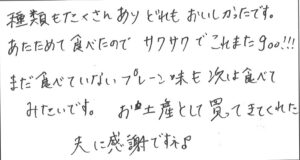 種類もたくさんあり どれもおいしかったです。
あたためて食べたので サクサクでこれまたgoo!!!
まだ食べていないプレーン味も次は食べて
みたいです。 お土産として買ってきてくれた
夫に感謝ですね♪